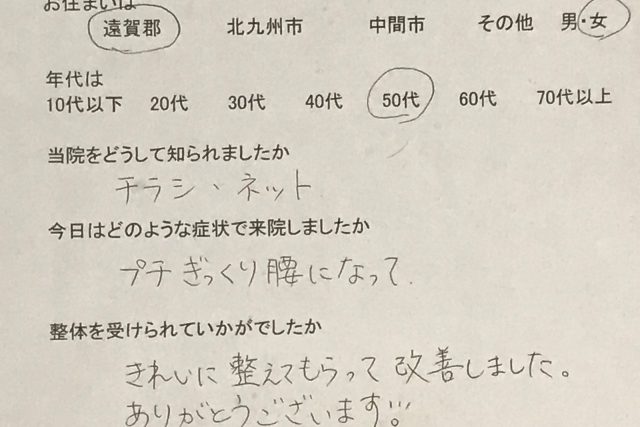 お住まいは
遠賀郡 北九州市 中間市 その他 男・女
年代は
10代以下 20代 30代 40代 50代 60代 70代以上
当院をどうして知られましたか
チラシ、ネット
今日はどのような症状で来院しましたか
プチぎっくり腰になって.
整体を受けられていかがでしたか
きれいに整えてもらって改善しました。
ありがとうございます!!